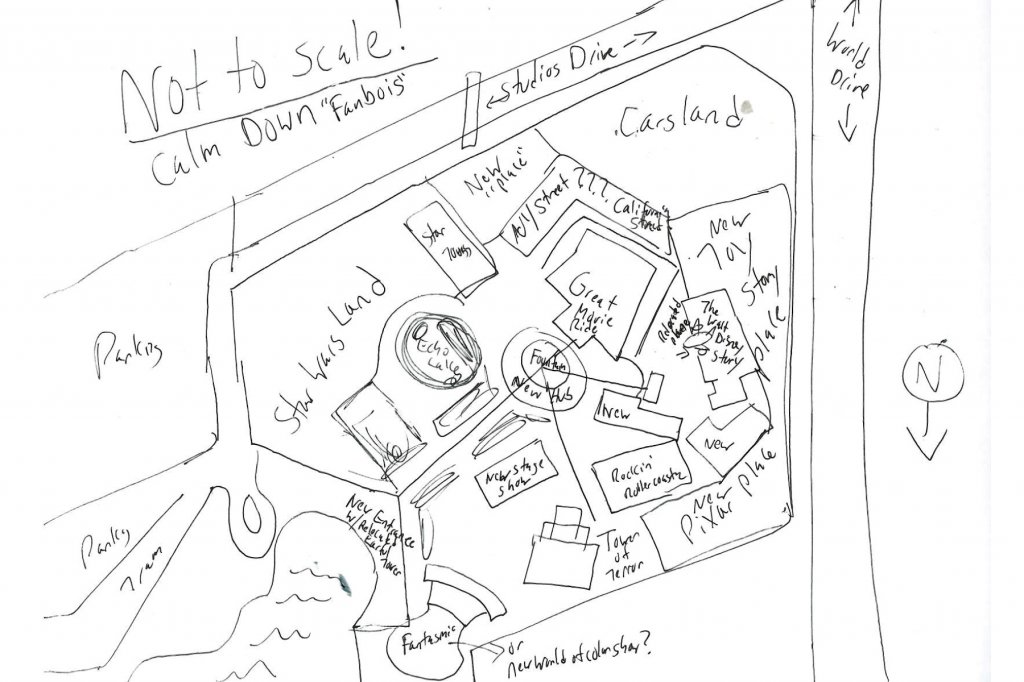 Not to Scale!
Calm DOWN "Fanbois"
<-Studios Drive->
World
Drive
Carsland
New
"place"
???
California
Street
Star
Tours
New
Toy
Story
place
Great
Movie
Ride
The
Walt
Disney
Story
Star Wars Land
Parking
Echo
Lake
Fountain
New Hub
New
New
N
New stage
Show
Rockin'
Rollercoaster
New
Pixar place
New Entrance
w/ Relocated
Tower
Tower
of
Terror
Parking
Tram
Fantasmic
or